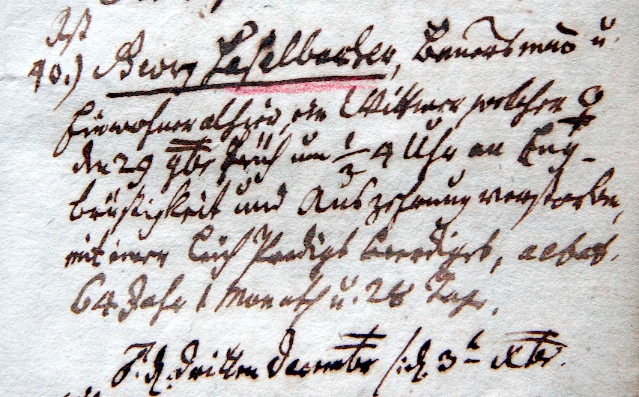 Ist
40.) Georg Haselbacher, Bauersmañ u.
Einwohner alhier, ein Wittwer welcher
den 29 9br. Früh um 1/2 4 Uhr an Eng-
brüstigkeit und Auszehrung verstorben,
mit einer Leich Predigt beerdiget, aetat.
64 Jahr 1 Monath u. 28 Tage.
d. dritten December /: d. 3t Xbr.